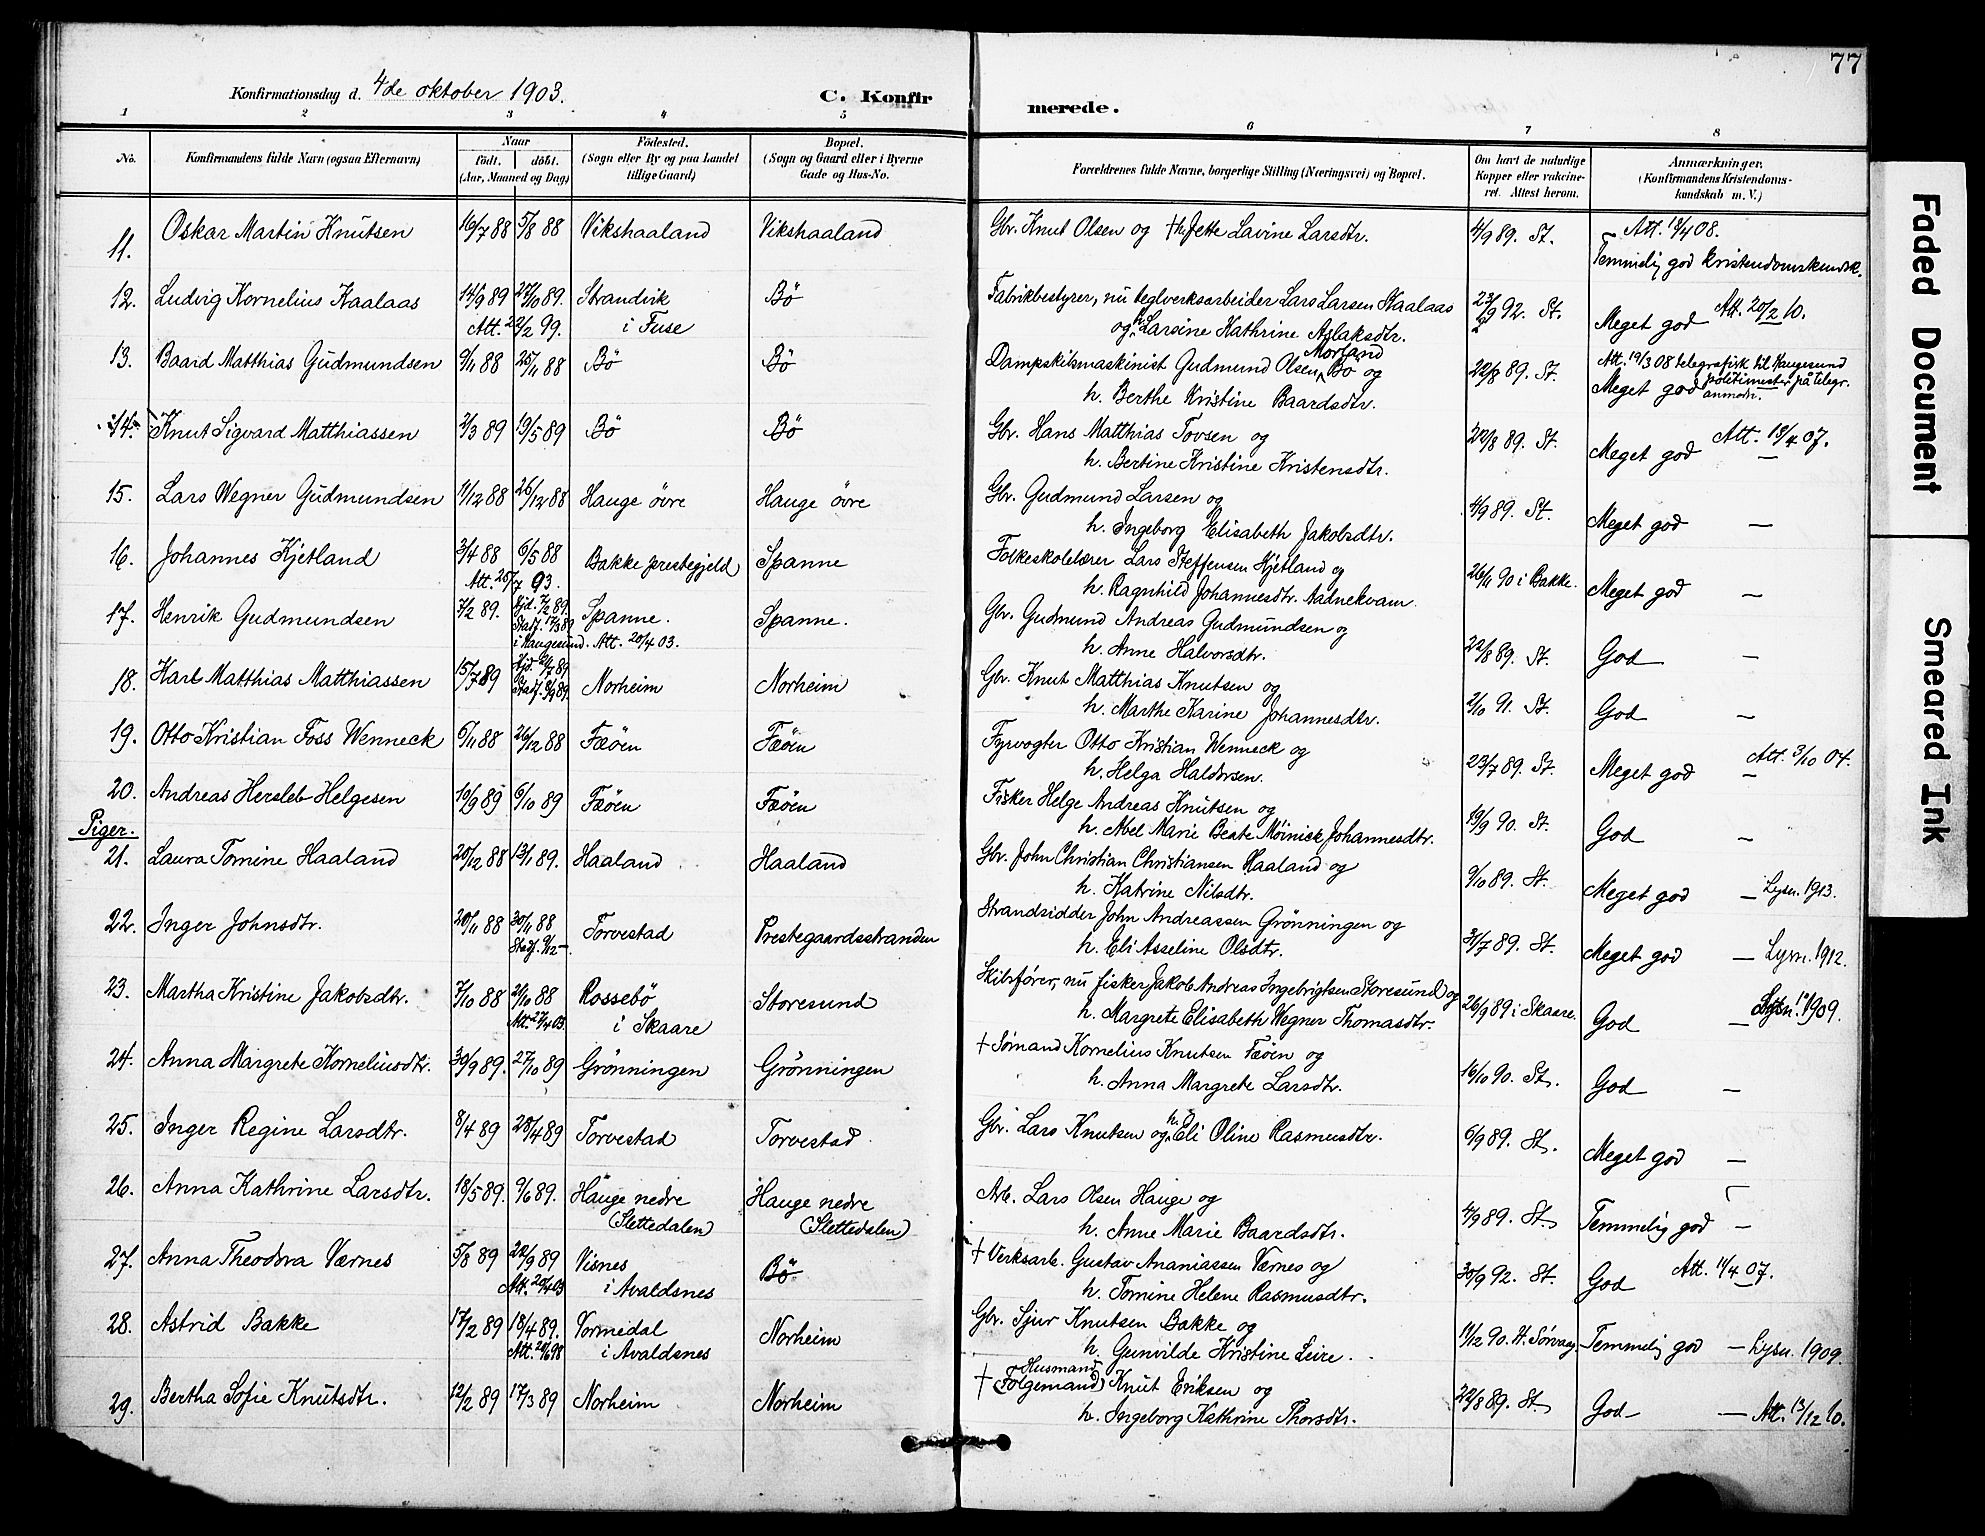 77
Konfirmationsdag d. 4de oktober 1903.
C. Konfirmerede.
1 2 3 4 5 6 7 8
No. Konfirmandens fulde Navn (ogsaa Efternavn) Naar født. døbt. (Aar, Maaned og Dag) Fødested. (Sogn eller By og paa Landet tillige Gaard) Bopæl. (Sogn og Gaard eller i Byerne Gade og Hus-No. Forældrenes fulde Navne, borgerlige Stilling (Næringsvei) og Bopæl. Om havt de naturlige Kopper eller vakcineret. Attest herom. Anmærkninger. (Konfirmandens Kristendomskundskab m. V.)
11. Oskar Martin Knutsen 16/7 88 5/8 88 Vikshaaland Vikshaaland Gbr. Knut Olsen og † h. Jette Lavine Larsdtr. 4/9 89. St. Temmelig god kristendomskundsk.
12. Ludvig Kornelius Kaalaas 14/9 89 27/10 89. Strandvik i Fuse Bö Fabrikbestyrer, nu teglverksarbeider Lars Larsen Kaalaas og h. Larsine Kathrine Aslaksdtr. 23/9 92. St. Meget god Att. 20/2 10.
13. Baard Matthias Gudmundsen 9/11 88 25/11 88 Bö Bö Dampskibsmaskinist Gudmund Olsen Morland Bö og h. Berthe Kristine Baardsdtr. 22/8 89. St. Meget god Att. 19/3 08 telegrafisk til Haugesund politimester på telegr. anmodn.
14. Knut Sigvard Matthiassen 2/3 89 19/5 89 Bö Bö Gbr. Hans Matthias Tovsen og h. Bertine Kristine Kristensdtr. 22/8 89. St. Meget god Att. 18/4 07.
15. Lars Wegner Gudmundsen 1/12 88 26/12 88 Hauge övre Hauge övre Gbr. Gudmund Larsen og h. Ingeborg Elisabeth Jakobsdtr. 4/9 89. St. Meget god —
16. Johannes Hjetland 3/4 88 6/5 88 Att. 25/7 93. Bakke prestegjeld Spanne Folkeskolelærer Lars Steffensen Hjetland og h. Ragnhild Johannesdtr. Aadnekvam 26/11 90 i Bakke. Meget god —
17. Henrik Gudmundsen 7/2 89. Hjd. 7/2 89. Stadf. 17/3 89 i Haugesund. Att. 20/4 03. Spanne. Spanne. Gbr. Gudmund Andreas Gudmundsen og h. Anne Halvorsdtr. 22/8 89. St. God —
18. Karl Matthias Matthiassen 15/7 89 Norheim Norheim Gbr. Knut Matthias Knutsen og h. Marthe Karine Johannesdtr. 2/10 91. St. God —
19. Otto Kristian Foss Wenneck 6/11 88 26/12 88 Fæöen Fæöen Fyrvogter Otto Kristian Wenneck og h. Helga Haldorsen. 23/7 89. St. Meget god — Att. 3/10 04.
20. Andreas Hersleb Helgesen 10/9 89 6/10 89 Fæöen Fæöen Fisker Helge Andreas Knutsen og h. Abel Marie Beate Möinick Johannesdtr. 19/9 90. St. God —
Piger.
21. Laura Tomine Haaland 20/12 88 13/1 89. Haaland Haaland Gbr. John Christian Christiansen Haaland og h. Katrine Nilsdtr. 9/10 89. St. Meget god — Lysn. 1913.
22. Inger Johnsdtr. 20/11 88 30/11 88 Torvestad Prestegaardsstranden Strandsidder John Andreassen Grönningen og h. Eli Asseline Olsdtr. 31/7 89. St. Meget god — Lysn. 1912.
23. Martha Kristine Jakobsdtr. 7/10 88 21/10 88 Att. 27/4 03. Rossebö i Skaare Storesund Skibsförer, nu fisker Jakob Andreas Ingebrigtsen Storesund og h. Margrete Elisabeth Wegner Thomasdtr. 26/9 89 i Skaare. God — Lysn. 1909.
24. Anna Margrete Korneliusdtr. 30/9 89. 27/10 89 Grönningen Grönningen † Sömand Kornelius Knutsen Fæöen og h. Anna Margrete Larsdtr. 16/10 90. St. God —
25. Inger Regine Larsdtr. 8/4 89 28/4 89 Torvestad Torvestad Gbr. Lars Knutsen og h. Eli Oline Rasmusdtr. 6/9 89. St. Meget god —
26. Anna Kathrine Larsdtr. 18/5 89. 9/6 89. Hauge nedre (Slettedalen) Hauge nedre (Slettedalen) Arb. Lars Olsen Hauge og h. Anne Marie Baardsdtr. 4/9 89. St. Temmelig god —
27. Anna Theodora Værnes 5/8 89 22/9 89 Att. 20/4 03 Visnes i Avaldsnes Bö † Verksarb. Gustav Ananiassen Værnes og h. Tomine Helene Rasmusdtr. 30/9 92. St. God Att. 11/4 07.
28. Astrid Bakke 17/2 89 18/4 89. Att. 20/6 98 Vormedal i Avaldsnes Norheim Gbr. Sjur Knutsen Bakke og h. Gunvilde Kristine Leire. 11/12 90. St. Temmelig god — Lysn. 1909.
29. Bertha Sofie Knutsdtr. 12/2 89 17/3 89 Norheim Norheim † Husmand (Fölgemand) Knut Eriksen og h. Ingeborg Kathrine Thorsdtr. 22/8 89. St. God — Att. 13/12 10.
Faded Document
Smeared Ink